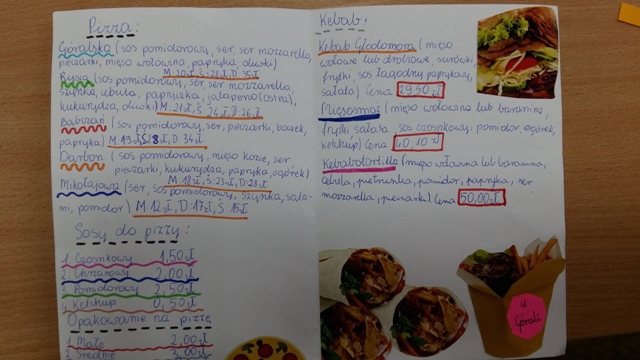 Pizza:
Góralska (sos pomidorowy, ser, ser mozzarella,
pieczarki, mięso wołowe, papryka, oliwki)
M: 20 zł, Ś:
(sos pomidorowy, ser, ser mozzarella,
szynka, cebula, papryczka jalapeno (ostra),
kukurydza, oliwki) M: 21 zł, Ś: 24 zł, D: 26 zł
(sos pomidorowy, ser, pieczarki, boczek,
papryka) M: 19 D: 34 zł
(sos pomidorowy, mięso kozie, ser
pieczarki, kukurydza, papryka, ogórek)
M: 18 zł, Ś: 23 zł, D: 28 zł
Mikołajowa (ser, sos pomidorowy, szynka, sala-
mi, pomidor) M: 12 zł, D: 17 zł, Ś 15 zł
Sosy do pizzy:
1. Czosnkowy 1,50 zł
2. Chrzanowy 2,00 zł
3. Pomidorowy 2,50 zł
4. Ketchup 0,50 zł
Opakowanie na pizzę
1. Małe 2,00 zł
2. Średnie 3,00 zł
Kebab:
Kebab Głodomora (mięso
wołowe lub drobiowe, surówki,
frytki, sos łagodny paprykowy,
sałata) Cena 29,50 zł
Mięsomoż (mięso wołowina lub baranina,
frytki sałata sos czosnkowy pomidor, ogórek,
ketchup) Cena 40,10 zł
Kebabotortilla (mięso wołowina lub baranina,
cebula, pietruszka, pomidor, papryka, ser
mozzarella, pieczarki) Cena 50,00 zł
U
Górali